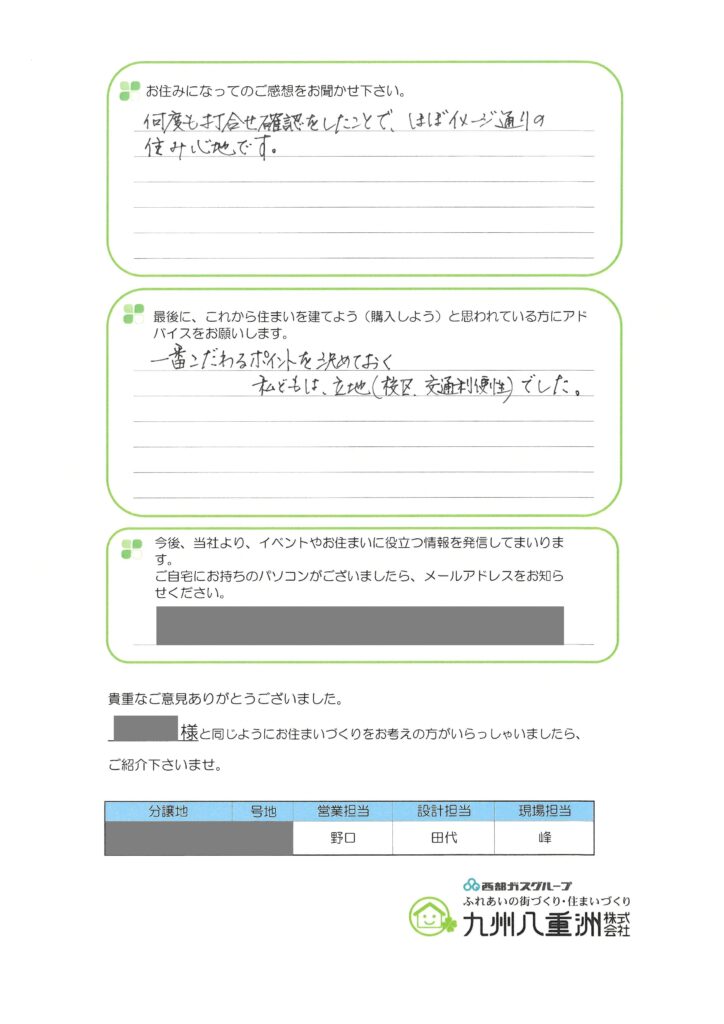 お住みになってのご感想をお聞かせ下さい。
何度も打合せ確認をしたことで、ほぼイメージ通りの
住み心地です。
最後に、これから住まいを建てよう（購入しよう）と思われている方にアド
バイスをお願いします。
一番こだわるポイントを決めておく
私どもは、立地(校区、交通利便性)でした。
今後、当社より、イベントやお住まいに役立つ情報を発信してまいりま
す。
ご自宅にお持ちのパソコンがございましたら、メールアドレスをお知ら
せください。
貴重なご意見ありがとうございました。
様と同じようにお住まいづくりをお考えの方がいらっしゃいましたら、
ご紹介下さいませ。
分譲地 号地 営業担当 設計担当 現場担当
野口 田代 峰
西部ガスグループ
ふれあいの街づくり・住まいづくり
九州八重洲株式会社